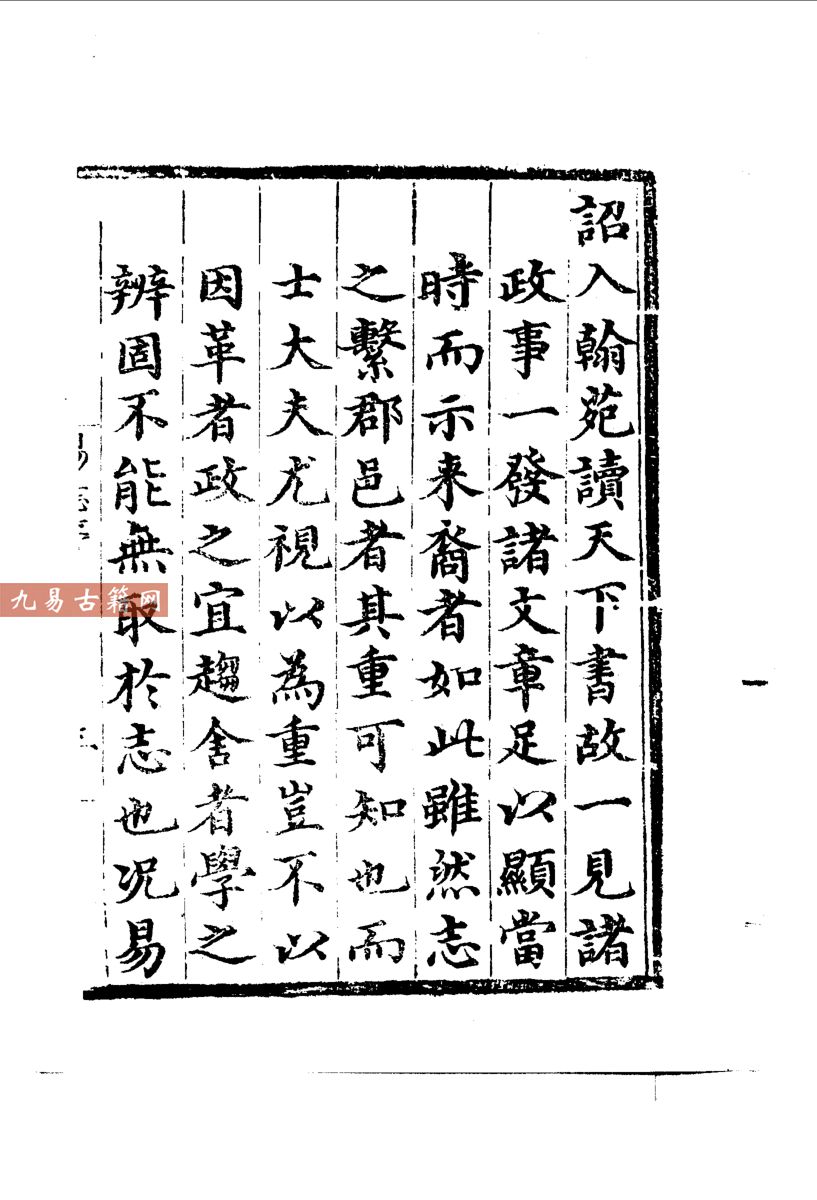 詔入翰苑讀天下書故一見諸
政事一發諸文章足以顯當
時而示来裔者如此雖然志
之繫郡邑者其重可知也而
士大夫尤視以為重豈不以
因革者政之宜趨舍者學之
辨固不能無取於志也況易
九易古籍网